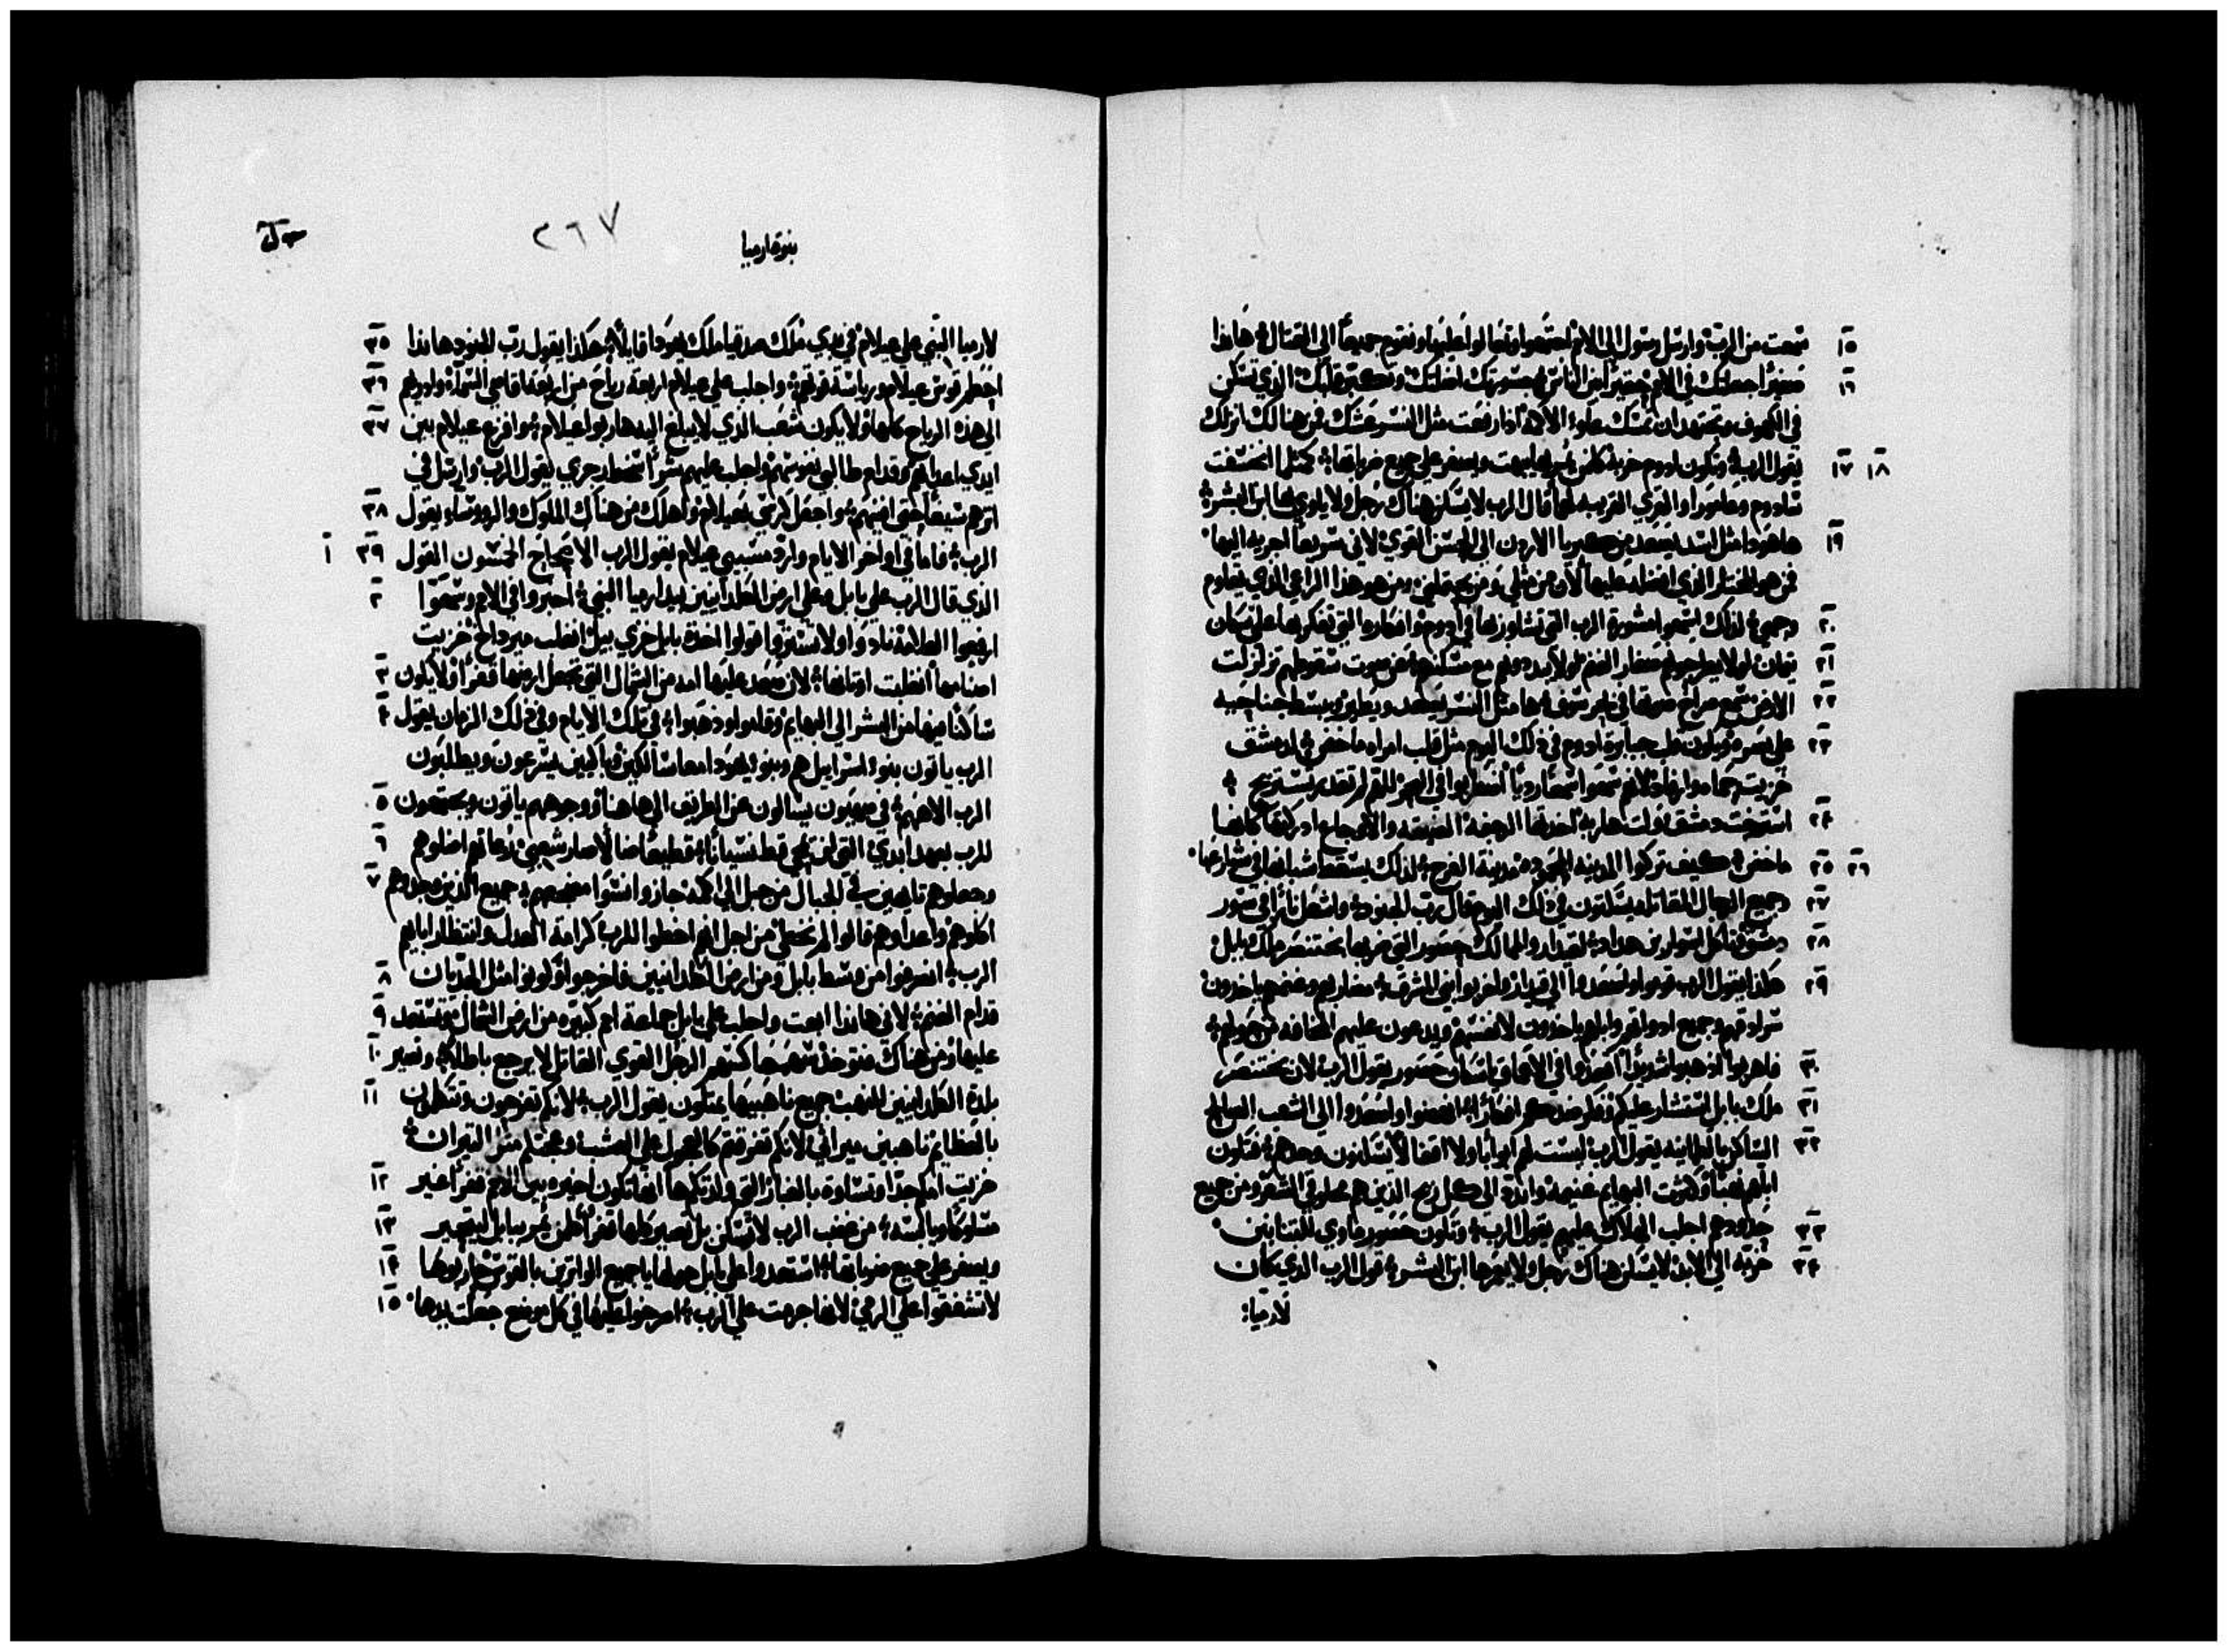 ١٥ سمعت من الرب وارسل رسول الى الامم اجتمعوا وتعالوا عليها ونقوم جميعاً الى القتال هاندا
١٦ صغيراً جعلتك في الامم حقيراً بين الناس جسورتك اضلتك وتكبر قلبك الذي تسكن
في الكهوف وتجتهد ان تمسك علو الاكمه اذا رفعت مثل النسر عشك فمن هنالك انزلك
١٧ ١٨ يقول الرب وتكون ادوم خربه كلمن يمر بها يبهت ويصفر على جميع ضرباتها كمثل ما انخسفت
سادوم وعامورا والقري القريبه لها قال الرب لا يسكن هناك رجل ولا ياوي بها ابن البشر
١٩ هاهودا مثل اسد يصعد من كبريا الاردن الى الحسن القوي لاني سريعاً اجريه اليها
فمن هو المختار الذي اقمه عليها لان من مثلي ومن يحتملني ومن هو هذا الراعي الذي يقاوم
٢٠ وجهي لذلك اسمعوا مشورة الرب التي تشاورها في ادوم وافكاره التي تفكر بها على سكان
٢١ تيمان لولا يطرحونهم صغار الغنم لولا يبددونهم مع مسكنهم من صوت سقوطهم تزلزلت
٢٢ الارض سمع صراخ صوتها في بحر سوف ها مثل النسر يصعد ويطير ويبسط جناحيه
٢٣ على بصره ويكون قلب جبابرة ادوم في ذلك اليوم مثل قلب امراه ماخض لدمشق
خزيت حماه وارفاد لانهم سمعوا سمعاً ردياً اضطربوا في البحر للهم لم تقدر يستريح
٢٤ استرخت دمشق ولت هاربه اخذتها الرجفه الضيقه والاوجاع ادركتها كانها
٢٥ ٢٦ ماخض كيف تركوا المدينه المجوده مدينة الفرح لذلك يسقط شبابها في شوارعها
٢٧ وجميع الرجال المقاتله يسكتون في ذلك اليوم قال رب الجنود واشعل ناراً في سور
٢٨ دمشق فتاكل اسوار بن هداد لقيدار ولممالك حصور التي ضربها بختنصر ملك بابل
٢٩ هكذا يقول الرب قوموا واصعدوا الى قيدار واخربوا بني المشرق مضاربهم وغنمهم ياخذون
سرادقهم وجميع ادواتهم وابلهم ياخذون لانفسهم ويدعون عليهم المخافه من حولهم
٣٠ فاهربوا اذهبوا شديداً اقعدوا في الاعماق ياسكان حصور يقول الرب لان بختنصر
٣١ ملك بابل استشار عليكم وفكر ضدكم افكاراً انهضوا واصعدوا الى الشعب السالم
٣٢ الساكن بالطمانينه يقول الرب ليست لهم ابواباً ولا اقفالاً يسكنون وحدهم فتكون
ابلهم نهباً وكثرت البهايم غنيمة وابددهم الى كل ريح الذين هم محلوقي الشعر ومن جميع
٣٣ حدودهم اجلب الهلاك عليهم يقول الرب وتكون حصور ماوي للتنانين
٣٤ خربه الى الابد لا يسكن هناك رجل ولا يعمرها ابن البشر قول الرب الذي كان
لارميا
نبوة ارميا
٢٦٧
٣٥ لارميا النبي على عيلام في بدي ملك صدقيا ملك يهودا قايلاً هكذا يقول رب الجنود هاندا
٣٦ احطم قوس عيلام ورياسة قوتهم واجلب على عيلام اربعة رياح من اربعة اقاصي السما واذريهم
٣٧ الى هذه الرياح كلها ولا يكون شعب الذي لا يبلغ اليه هاربوا عيلام وافزع عيلام بين
ايدي اعدايهم وقدام طالبي نفوسهم واجلب عليهم شراً سخط رجزي يقول الرب وارسل في
٣٨ اثرهم سيفاً حتى افنيهم واجعل كرسي بعيلام واهلك من هناك الملوك والروسا يقول
٣٩ ١ الرب فاما في اواخر الايام وارد مسبيي عيلام يقول الرب الاصحاح الخمسون القول
٢ الذي قال الرب على بابل وعلى ارض الكلدانيين بيد ارميا النبي اخبروا في الامم وسمعوا
ارفعوا العلامة نادوا ولا تستروا قولوا اخذت بابل خزي بيل انغلب ميرداخ خزيت
٣ اصنامها انغلبت اوثانها لان صعد عليها امه من الشمال التي تجعل ارضها قفراً ولا يكون
٤ ساكناً فيها من البشر الى البهايم وقلعوا وذهبوا في تلك الايام وفي ذلك الزمان يقول
الرب ياتون بنو اسراييل هم وبنو يهودا معاً سالكين وباكيين يسرعون ويطلبون
٥ الرب الاههم في صهيون يسالون عن الطريق الى هاهنا وجوههم ياتون ويجتمعون
٦ للرب بعهد ابدي التي لن يمحي قط نسياناً قطيعاً ضالاً صار شعبي رعاتهم اضلوهم
٧ وجعلوهم تايهين في الجبال من جبل الى اكمه جازوا نسوا مضجعهم جميع الذين وجدوهم
اكلوهم واعداوهم قالوا لم نخطي من اجل انهم اخطوا للرب كرامة العدل وانتظار ابايهم
٨ الرب انصرفوا من وسط بابل ومن ارض الكلدانيين فاخرجوا وكونوا مثل الجديان
٩ قدام الغنم لاني هاندا ابعث واجلب على بابل جماعة امم كبيره من ارض الشمال وتستعد
١٠ عليها ومن هناك فتوخذ سهمها كسهم الرجل القوي القاتل لا يرجع باطلاً وتصير
١١ بلدة الكلدانيين للنهب جميع ناهبيها يمتلون يقول الرب لانكم تفرحون وتتكلمون
بالعظايم ناهبين ميراثي لانكم تفرقتم كالعجول على العشب وعججتم مثل التيران
١٢ خزيت امكم جداً وتساوت بالغبار التي ولدتكم ها انها تكون اخيره بين الامم قفراً غير
١٣ مسلوكاً ويابسه من غضب الرب لا تسكن بل تصير كلها قفراً كلمن يمر ببابل يتحير
١٤ ويصفر على جميع ضرباتها استعدوا على بابل حولها يا جميع الواترين بالقوس حاربوها
١٥ لا تشفقوا على الرمي لانها اجرمت على الرب اصرخوا عليها في كل موضع جعلت يدها